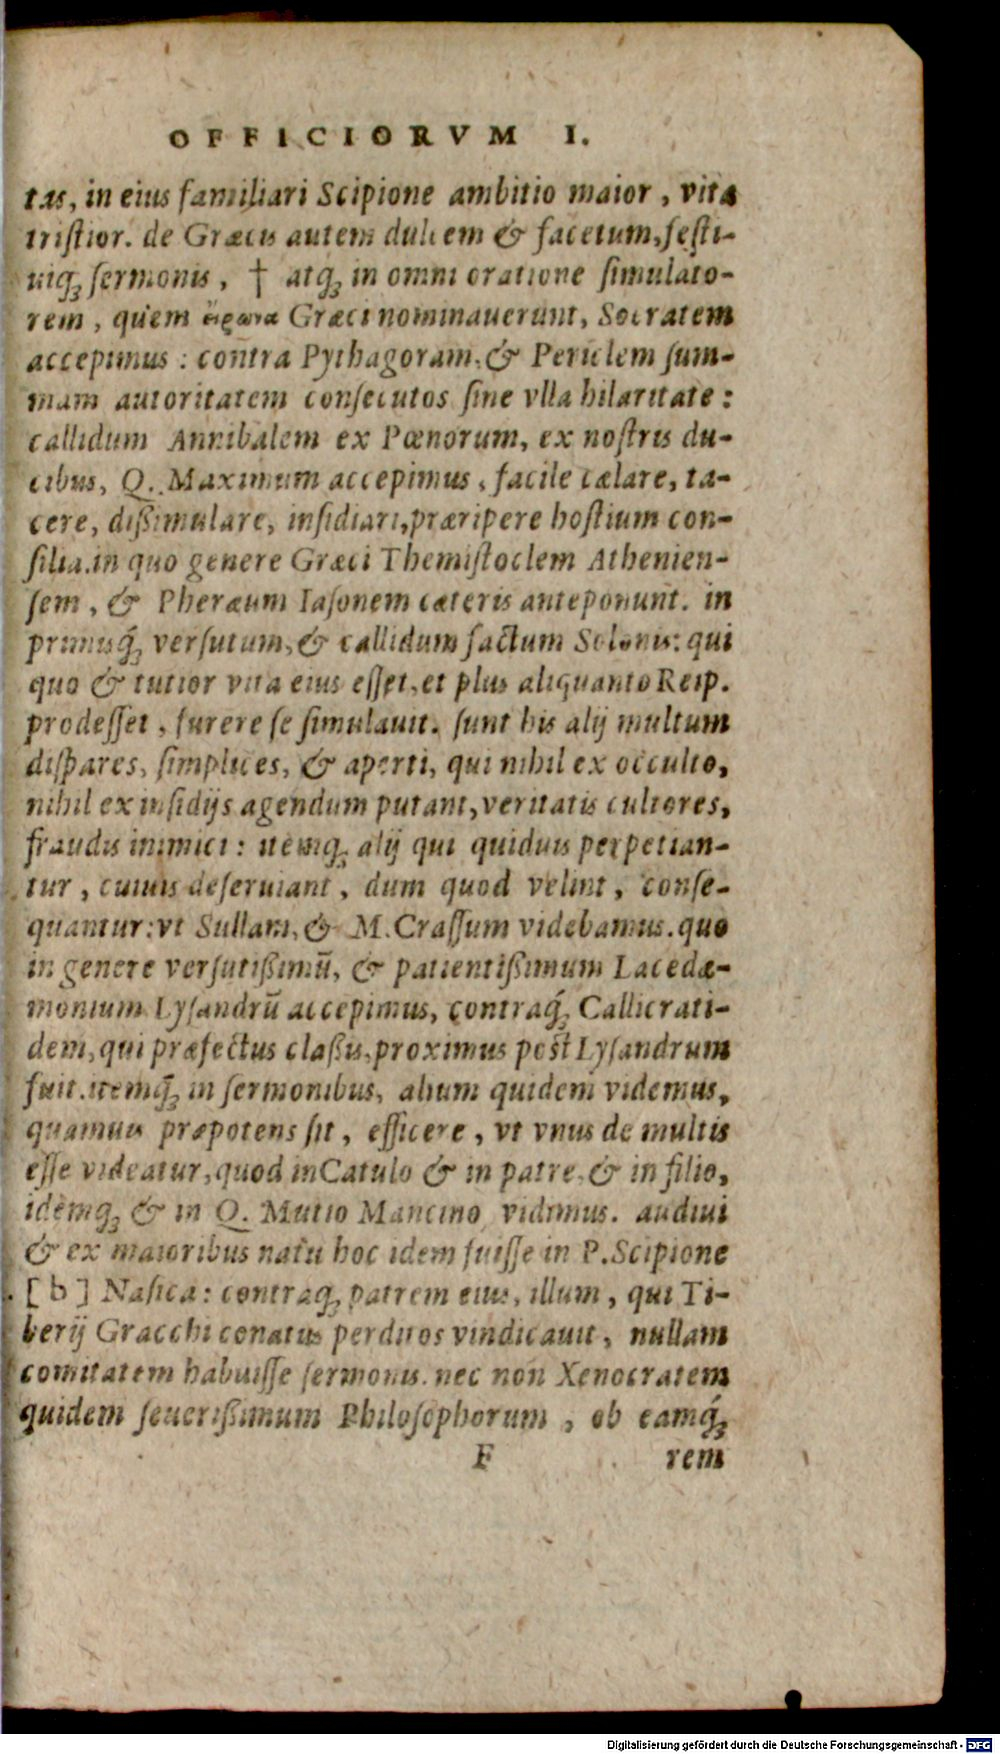 OFFICIORVM I.
tas, in eius familiari Scipione ambitio maior, vita
tristior. de Græcis autem dulcem & facetum, festi-
uiq́; sermonis, † atq; in omni oratione simulato-
rem, quem εἴρωνα Græci nominauerunt, Socratem
accepimus: contra Pythagoram, & Periclem sum-
mam autoritatem consecutos sine vlla hilaritate:
callidum Annibalem ex Pœnorum, ex nostris du-
cibus, Q. Maximum accepimus, facile cælare, ta-
cere, dißimulare, insidiari, præripere hostium con-
silia. in quo genere Græci Themistoclem Athenien-
sem, & Pheræum Iasonem cæteris anteponunt. in
primisq́; versutum, & callidum factum Solonis: qui
quo & tutior vita eius esset, et plus aliquanto Reip.
prodesset, furere se simulauit. sunt his alij multum
dispares, simplices, & aperti, qui nihil ex occulto,
nihil ex insidijs agendum putant, veritatis cultores,
fraudis inimici: itemq; alij qui quiduis perpetian-
tur, cuiuis deseruiant, dum quod velint, conse-
quantur: vt Sullam, & M. Crassum videbamus. quo
in genere versutißimū, & patientißimum Lacedæ-
monium Lysandrū accepimus, contraq́; Callicrati-
dem, qui præfectus claßis, proximus post Lysandrum
fuit. itemq́; in sermonibus, alium quidem videmus,
quamuis præpotens sit, efficere, vt vnus de multis
esse videatur, quod in Catulo & in patre, & in filio,
idemq; & in Q. Mutio Mancino vidimus. audiui
& ex maioribus natu hoc idem fuisse in P. Scipione
[b] Nasica: contraq; patrem eius, illum, qui Ti-
berij Gracchi conatus perditos vindicauit, nullam
comitatem habuisse sermonis. nec non Xenocratem
quidem seuerißimum Philosophorum, ob eamq́;
F rem
Digitalisierung gefördert durch die Deutsche Forschungsgemeinschaft - DFG